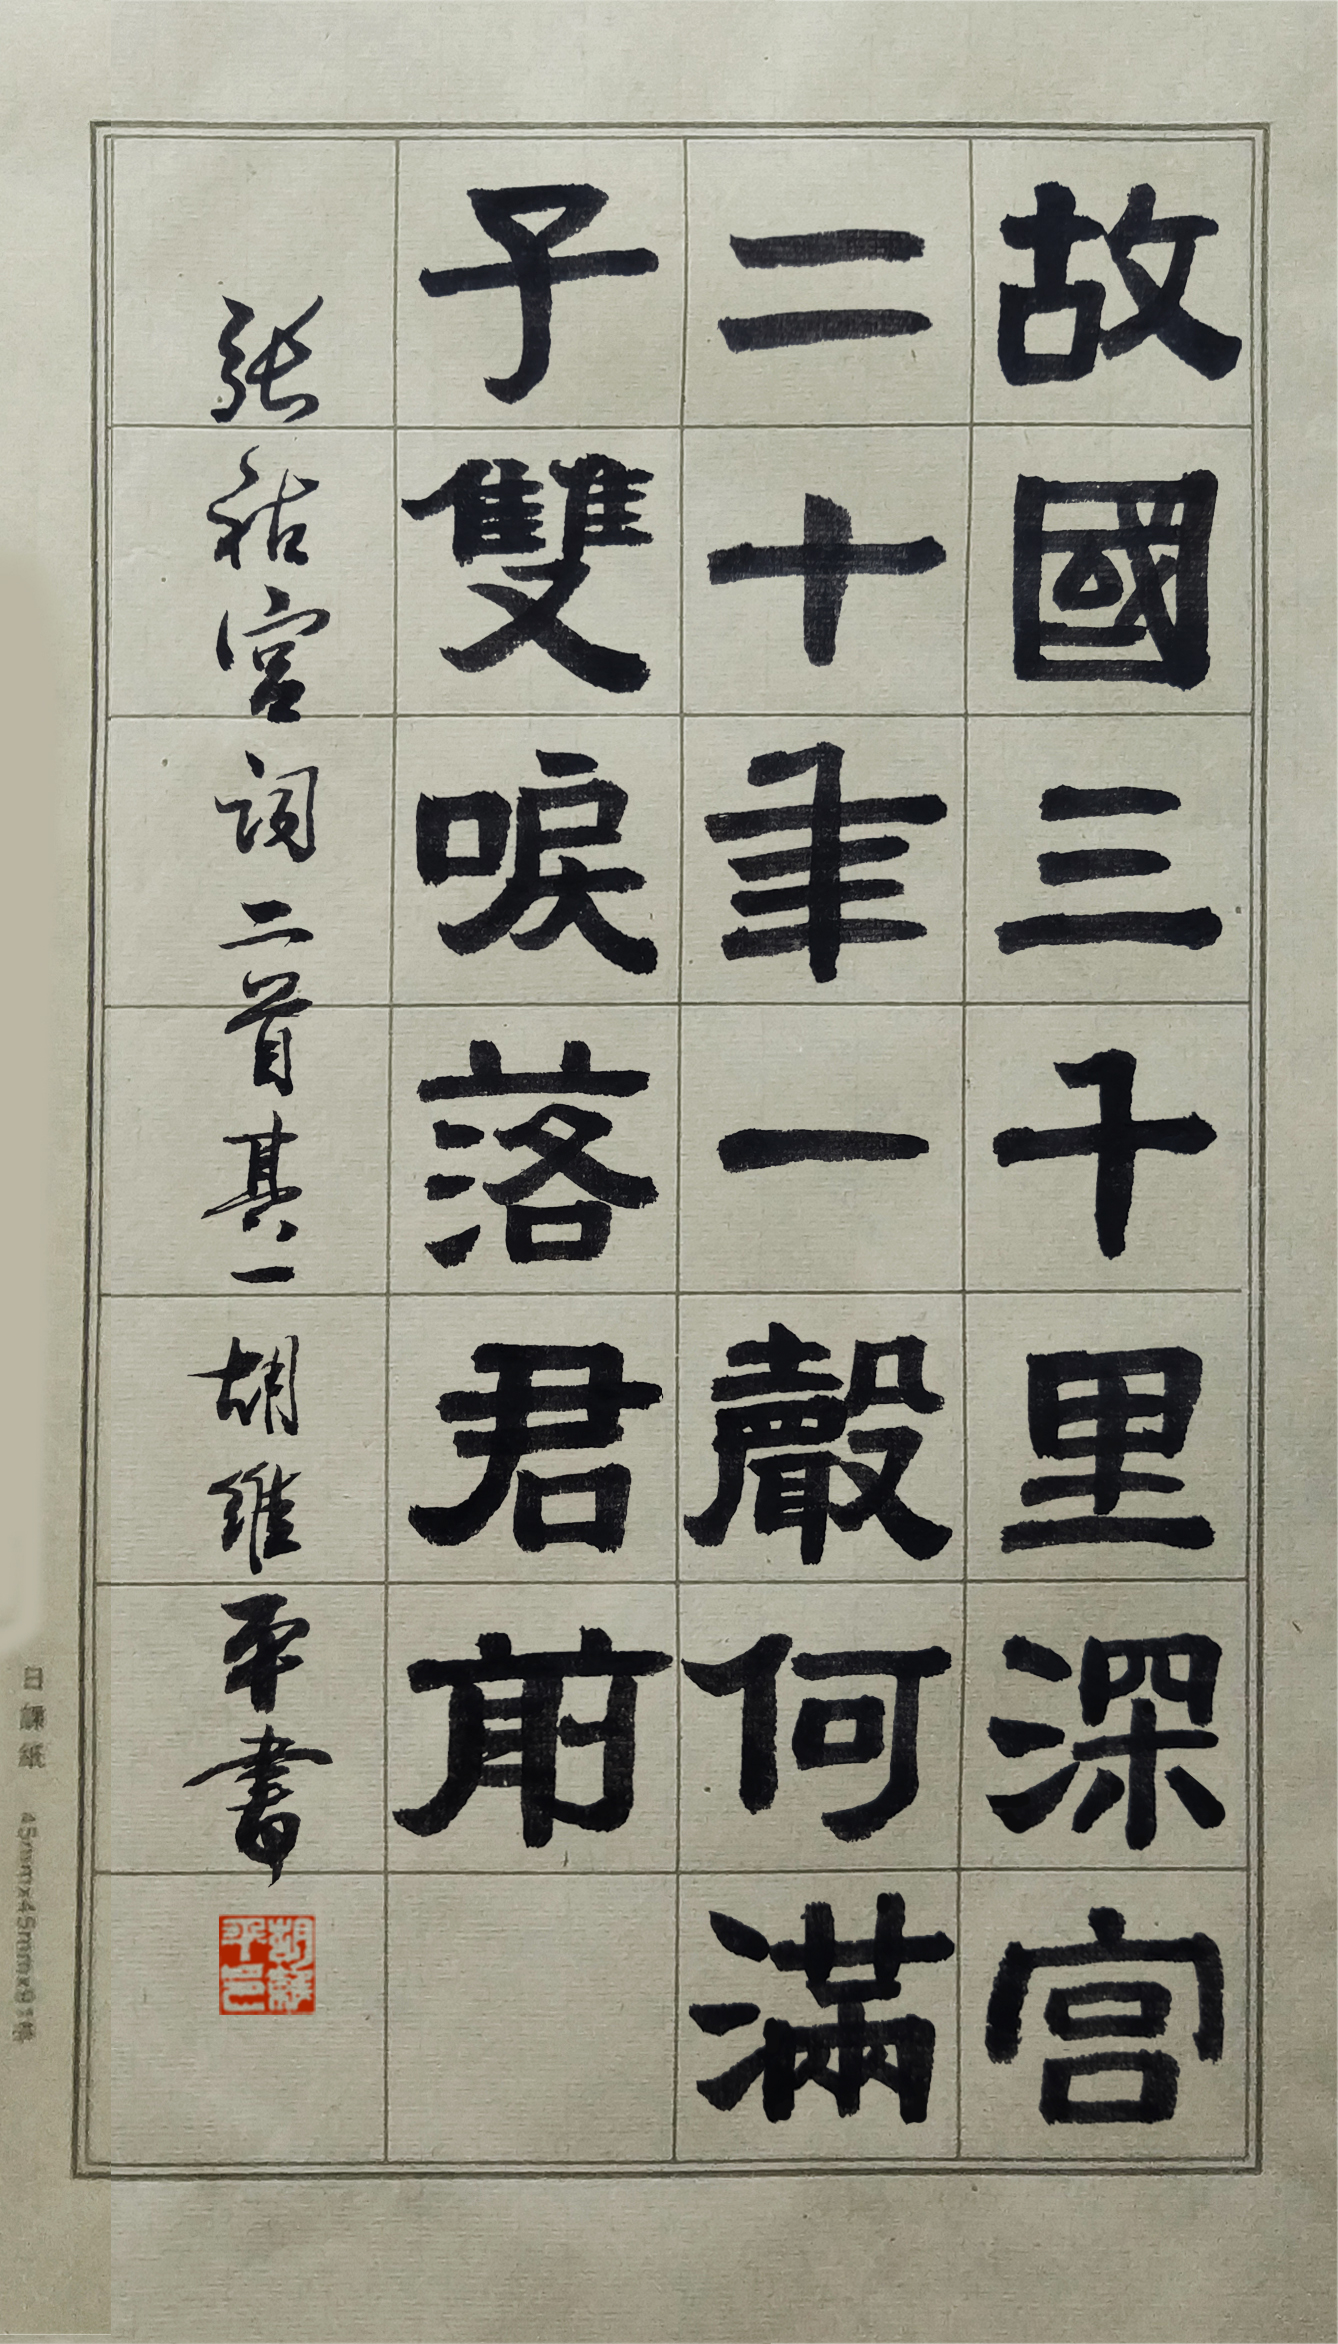 故國三千里深宫
二十年一聲何滿
子雙唳落君前
張祜宫詞二首其一 胡維平書
胡維平印
日課紙 45mmx45mmx91格